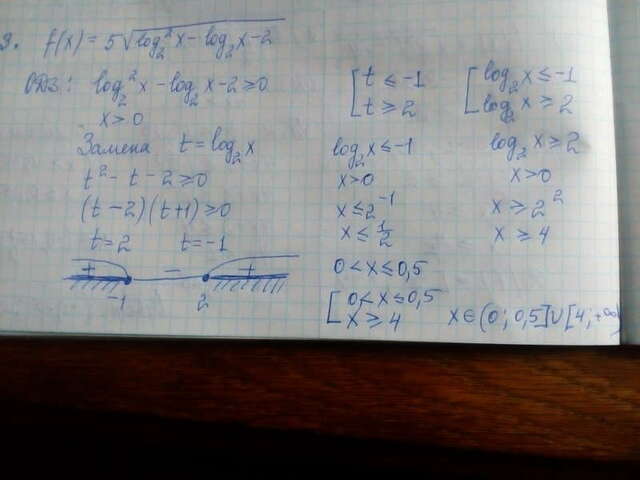 9. f(x) = 5√log₂²x - log₂x - 2
ОДЗ: log₂²x - log₂x - 2 ≥ 0
x > 0
Замена t = log₂x
t² - t - 2 ≥ 0
(t - 2)(t + 1) ≥ 0
t = 2 t = -1
+ - +
-1 2
[ t ≤ -1
t ≥ 2
[ log₂x ≤ -1
log₂x ≥ 2
log₂x ≤ -1
x > 0
x ≤ 2⁻¹
x ≤ 1/2
0 < x ≤ 0,5
log₂x ≥ 2
x > 0
x ≥ 2²
x ≥ 4
[ 0 < x ≤ 0,5
x ≥ 4
x ∈ (0; 0,5] ∪ [4; +∞)